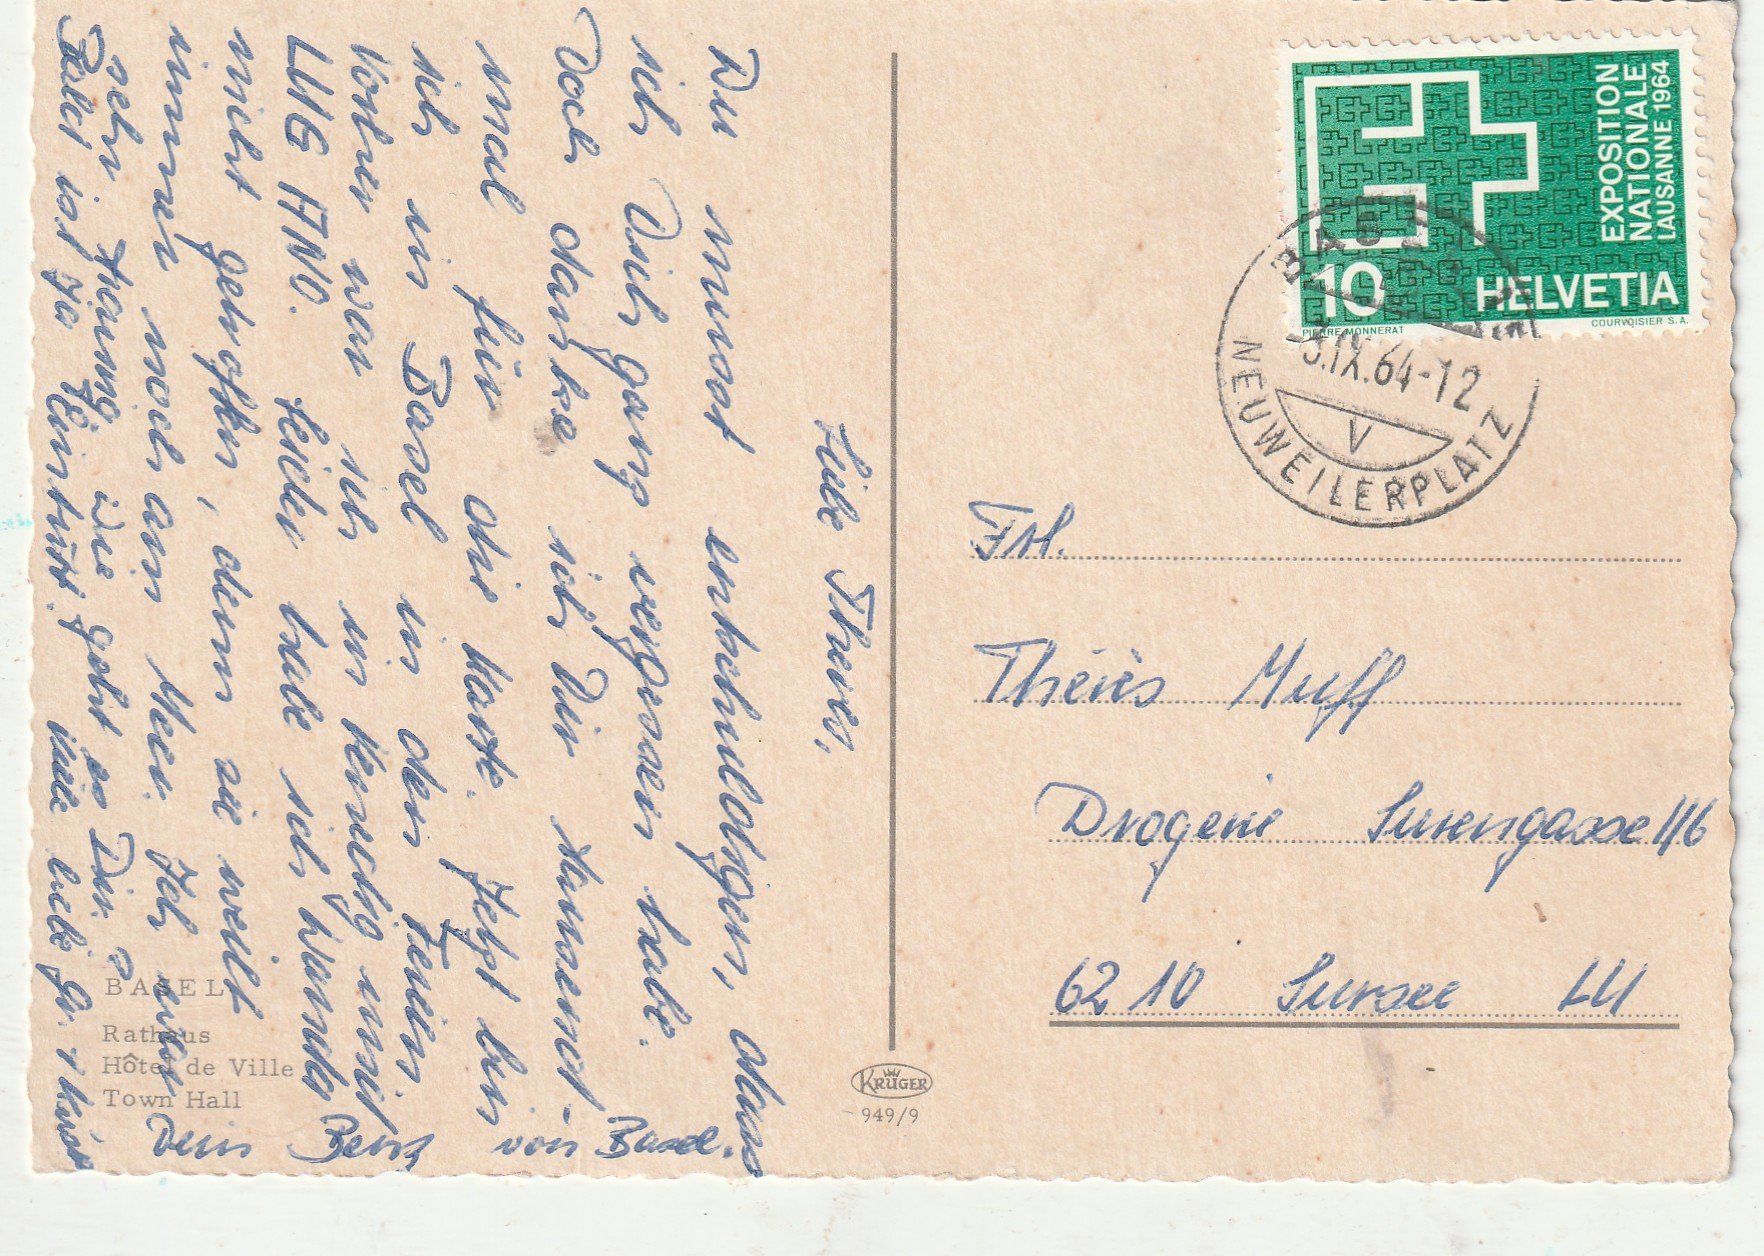 Liebe Theres,
Du musst entschuldigen, dass
ich Dich ganz vergessen habe.
Doch danke ich Dir tausend-
mal für die Karte. Jetzt bin
ich in Basel in den Ferien
Vorher war ich in
LUGANO. Leider habe ich
nicht getroffen, denn sie weilt
immer noch am Meer. Ich
sehr Wie geht es Dir?
Bald ist ja
Dein von Basel.
BASEL
Rathaus
Hôtel de Ville
Town Hall
KRÜGER
949/9
EXPOSITION
NATIONALE
LAUSANNE 1964
10 HELVETIA
PIERRE MONNERAT
COURVOISIER S.A.
BASEL
.IX.64-12
V
NEUWEILERPLATZ
Frl.
Thérès Muff
Drogerie Surengasse 116
6210 Sursee LU